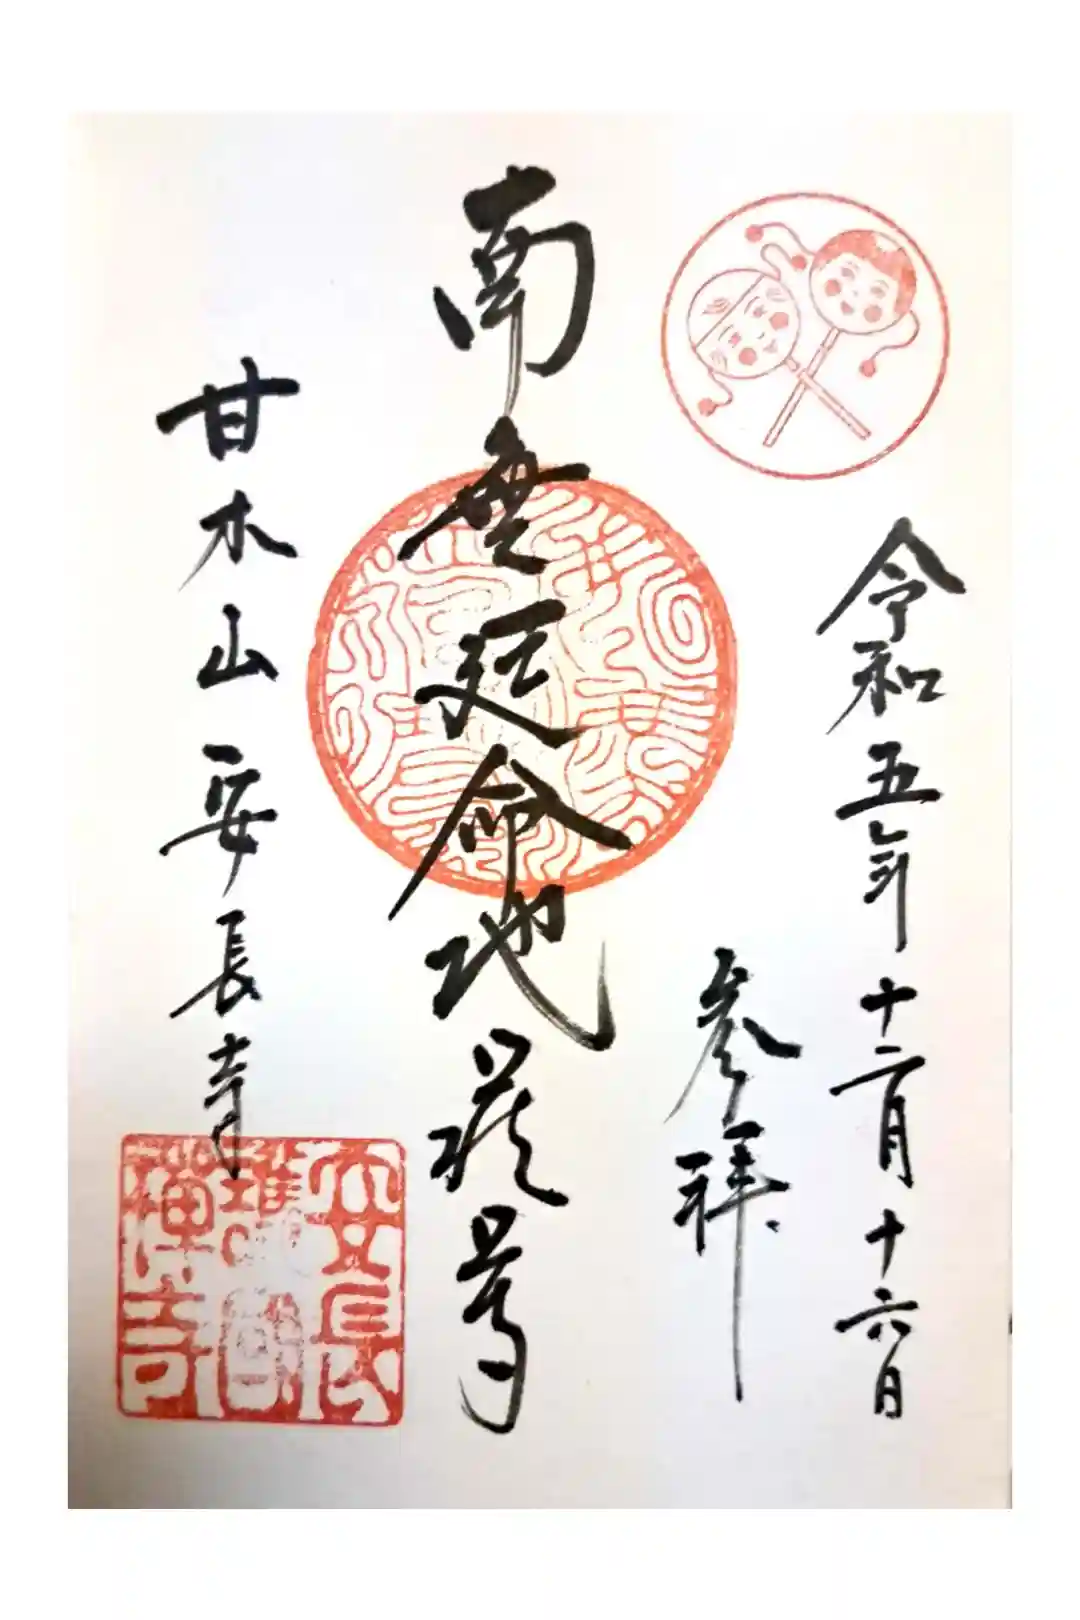 令和五年十二月十六日
参拝
南無延命地蔵尊
甘木山安長寺
安長
禅寺